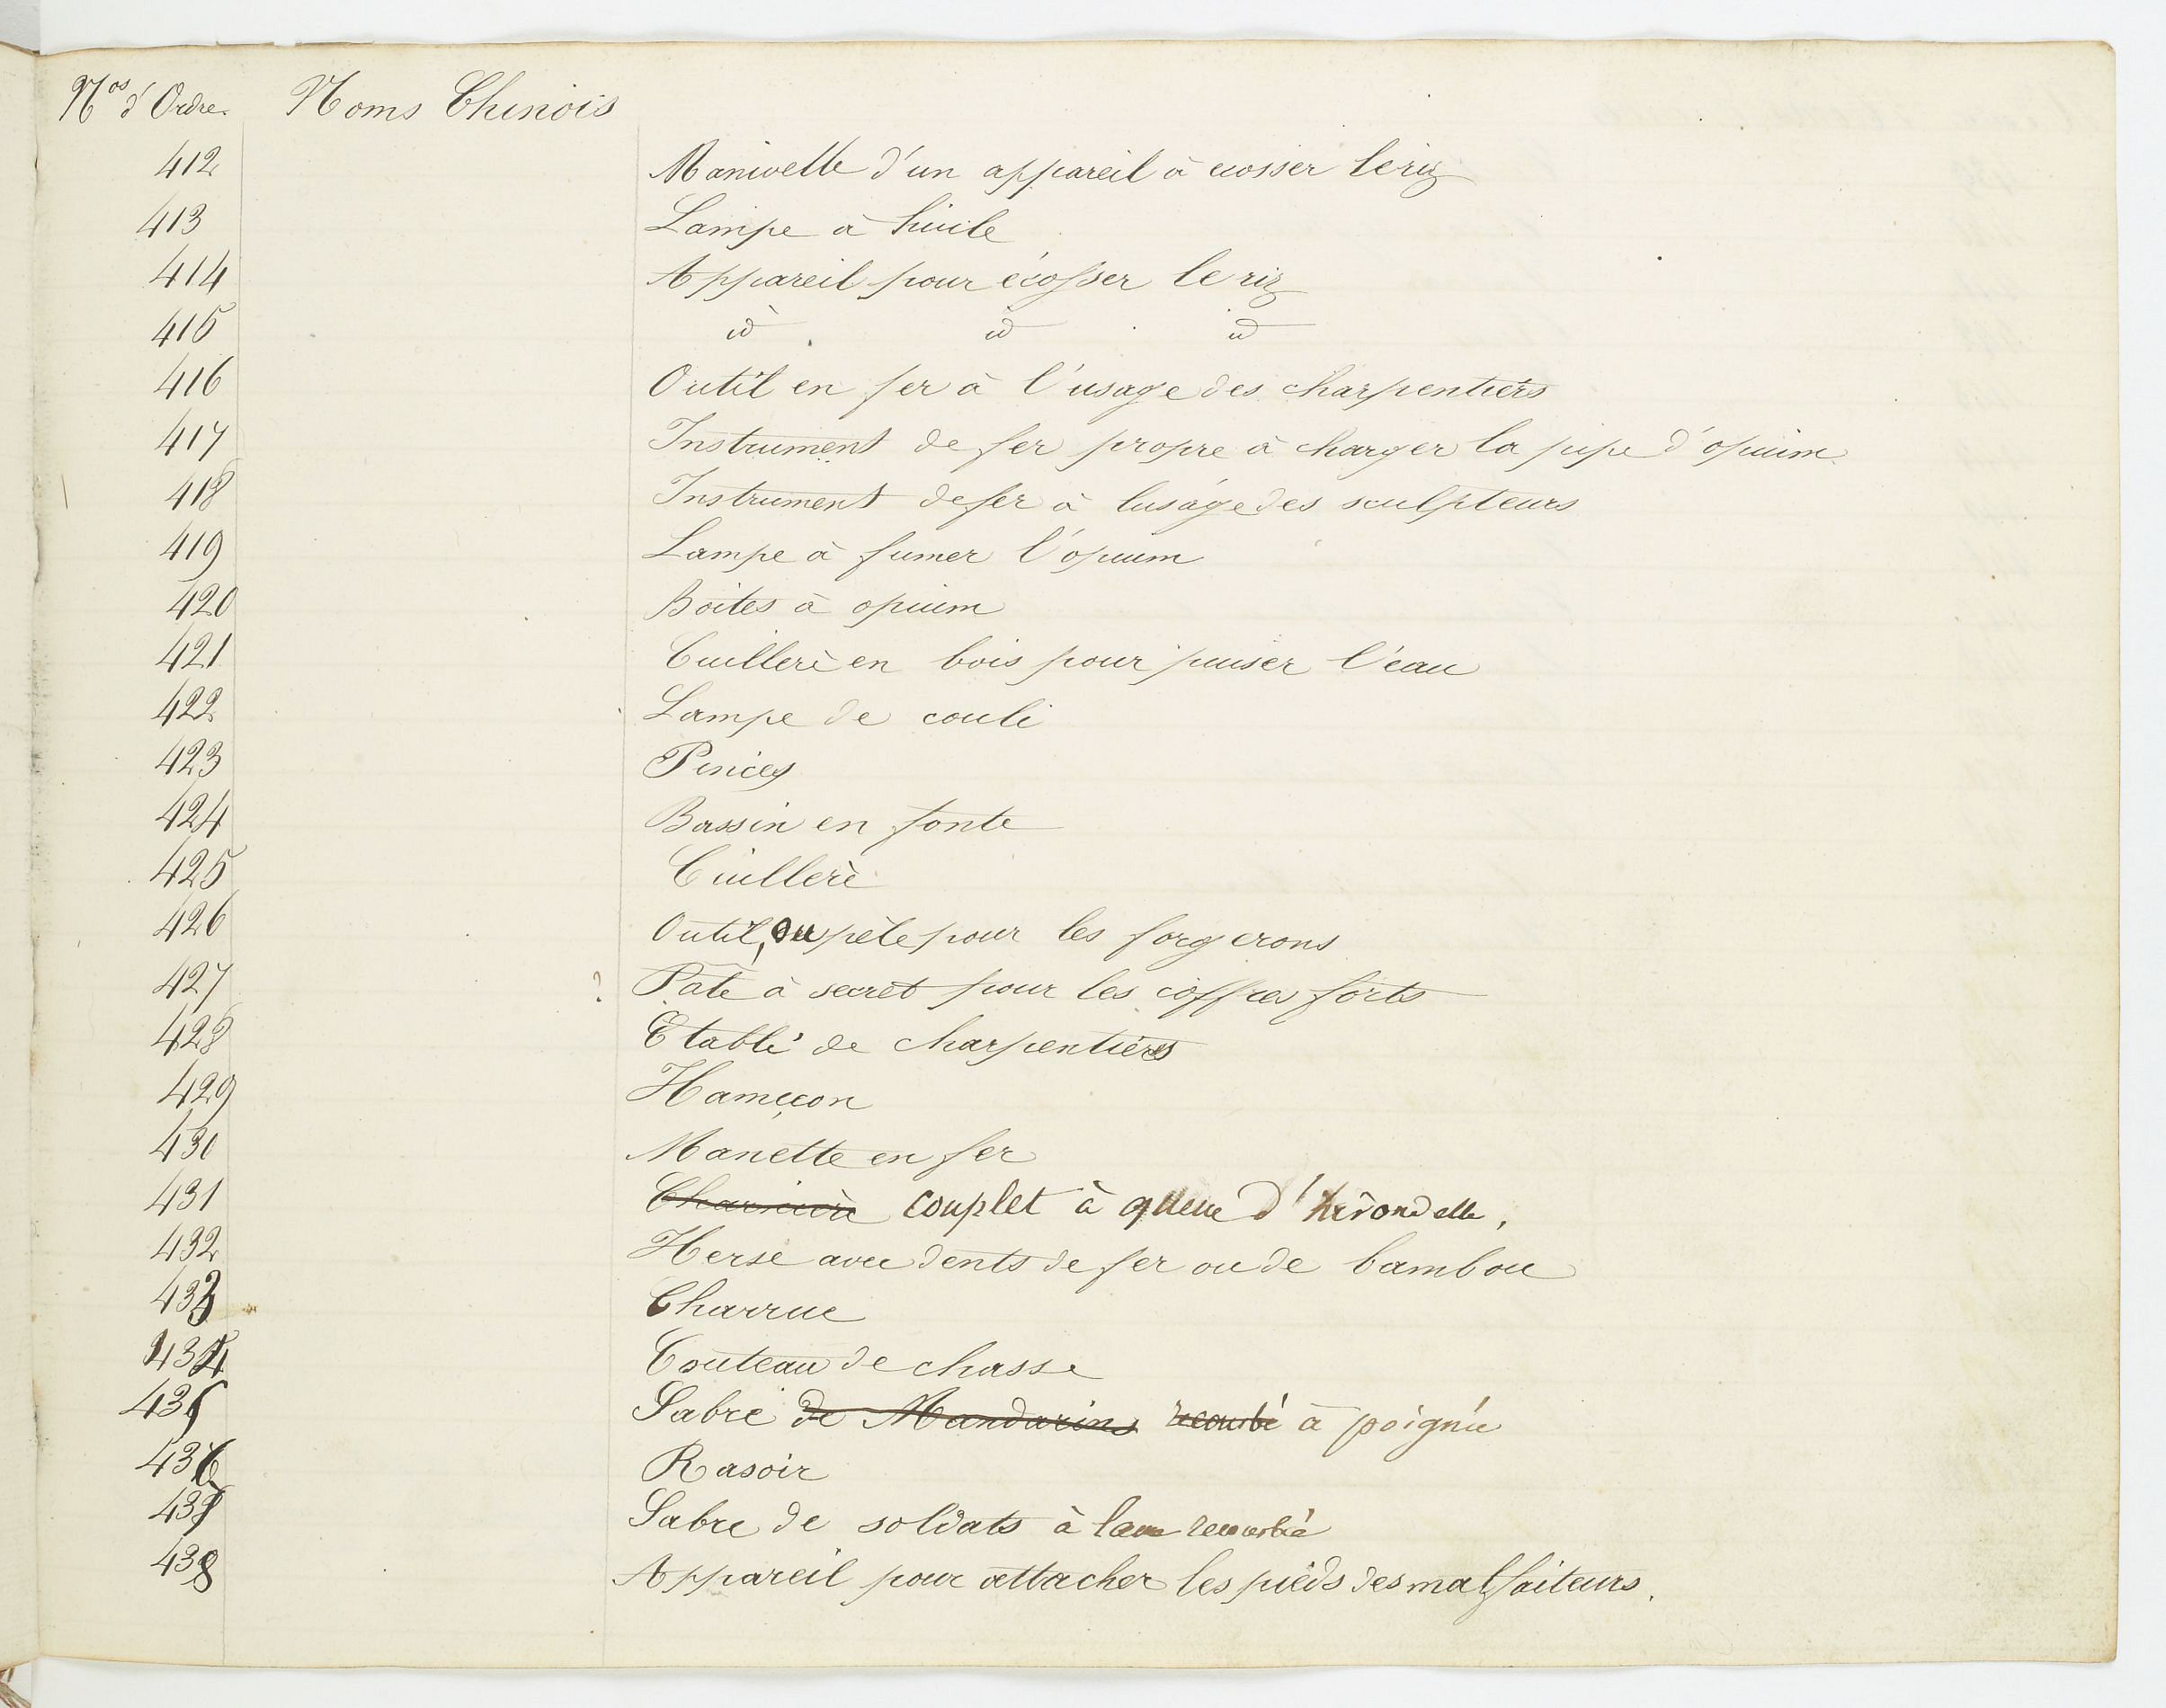 Nos d'Ordre. Noms Chinois
412 Manivelle d'un appareil à ecosser le riz
413 Lampe à huile
414 Appareil pour écosser le riz
415 id . id id
416 Outil en fer à l'usage des charpentiers
417 Instrument de fer propre à charger la pipe d'opium
418 Instrument de fer à lusage des sculpteurs
419 Lampe à fumer l'opium
420 Boites à opium
421 Cuillere en bois pour puiser l'eau
422 Lampe de couli
423 Pinces
424 Bassin en fonte
425 Cuillerè
426 Outil, ou pèle pour les forgerons
427 ? Pate à secret pour les coffres forts
428 Etabli de charpentiers
429 Hameçon
430 Manette en fer
431 Charniere couplet à queue d'hirondelle,
432 Herse avec dents de fer ou de bambou
433 Charrue
434 Couteau de chasse
435 Sabre de Mandarins recourbé à poignée
436 Rasoir
437 Sabre de soldats à lame recourbée
438 Appareil pour attacher les pieds des malfaiteurs.